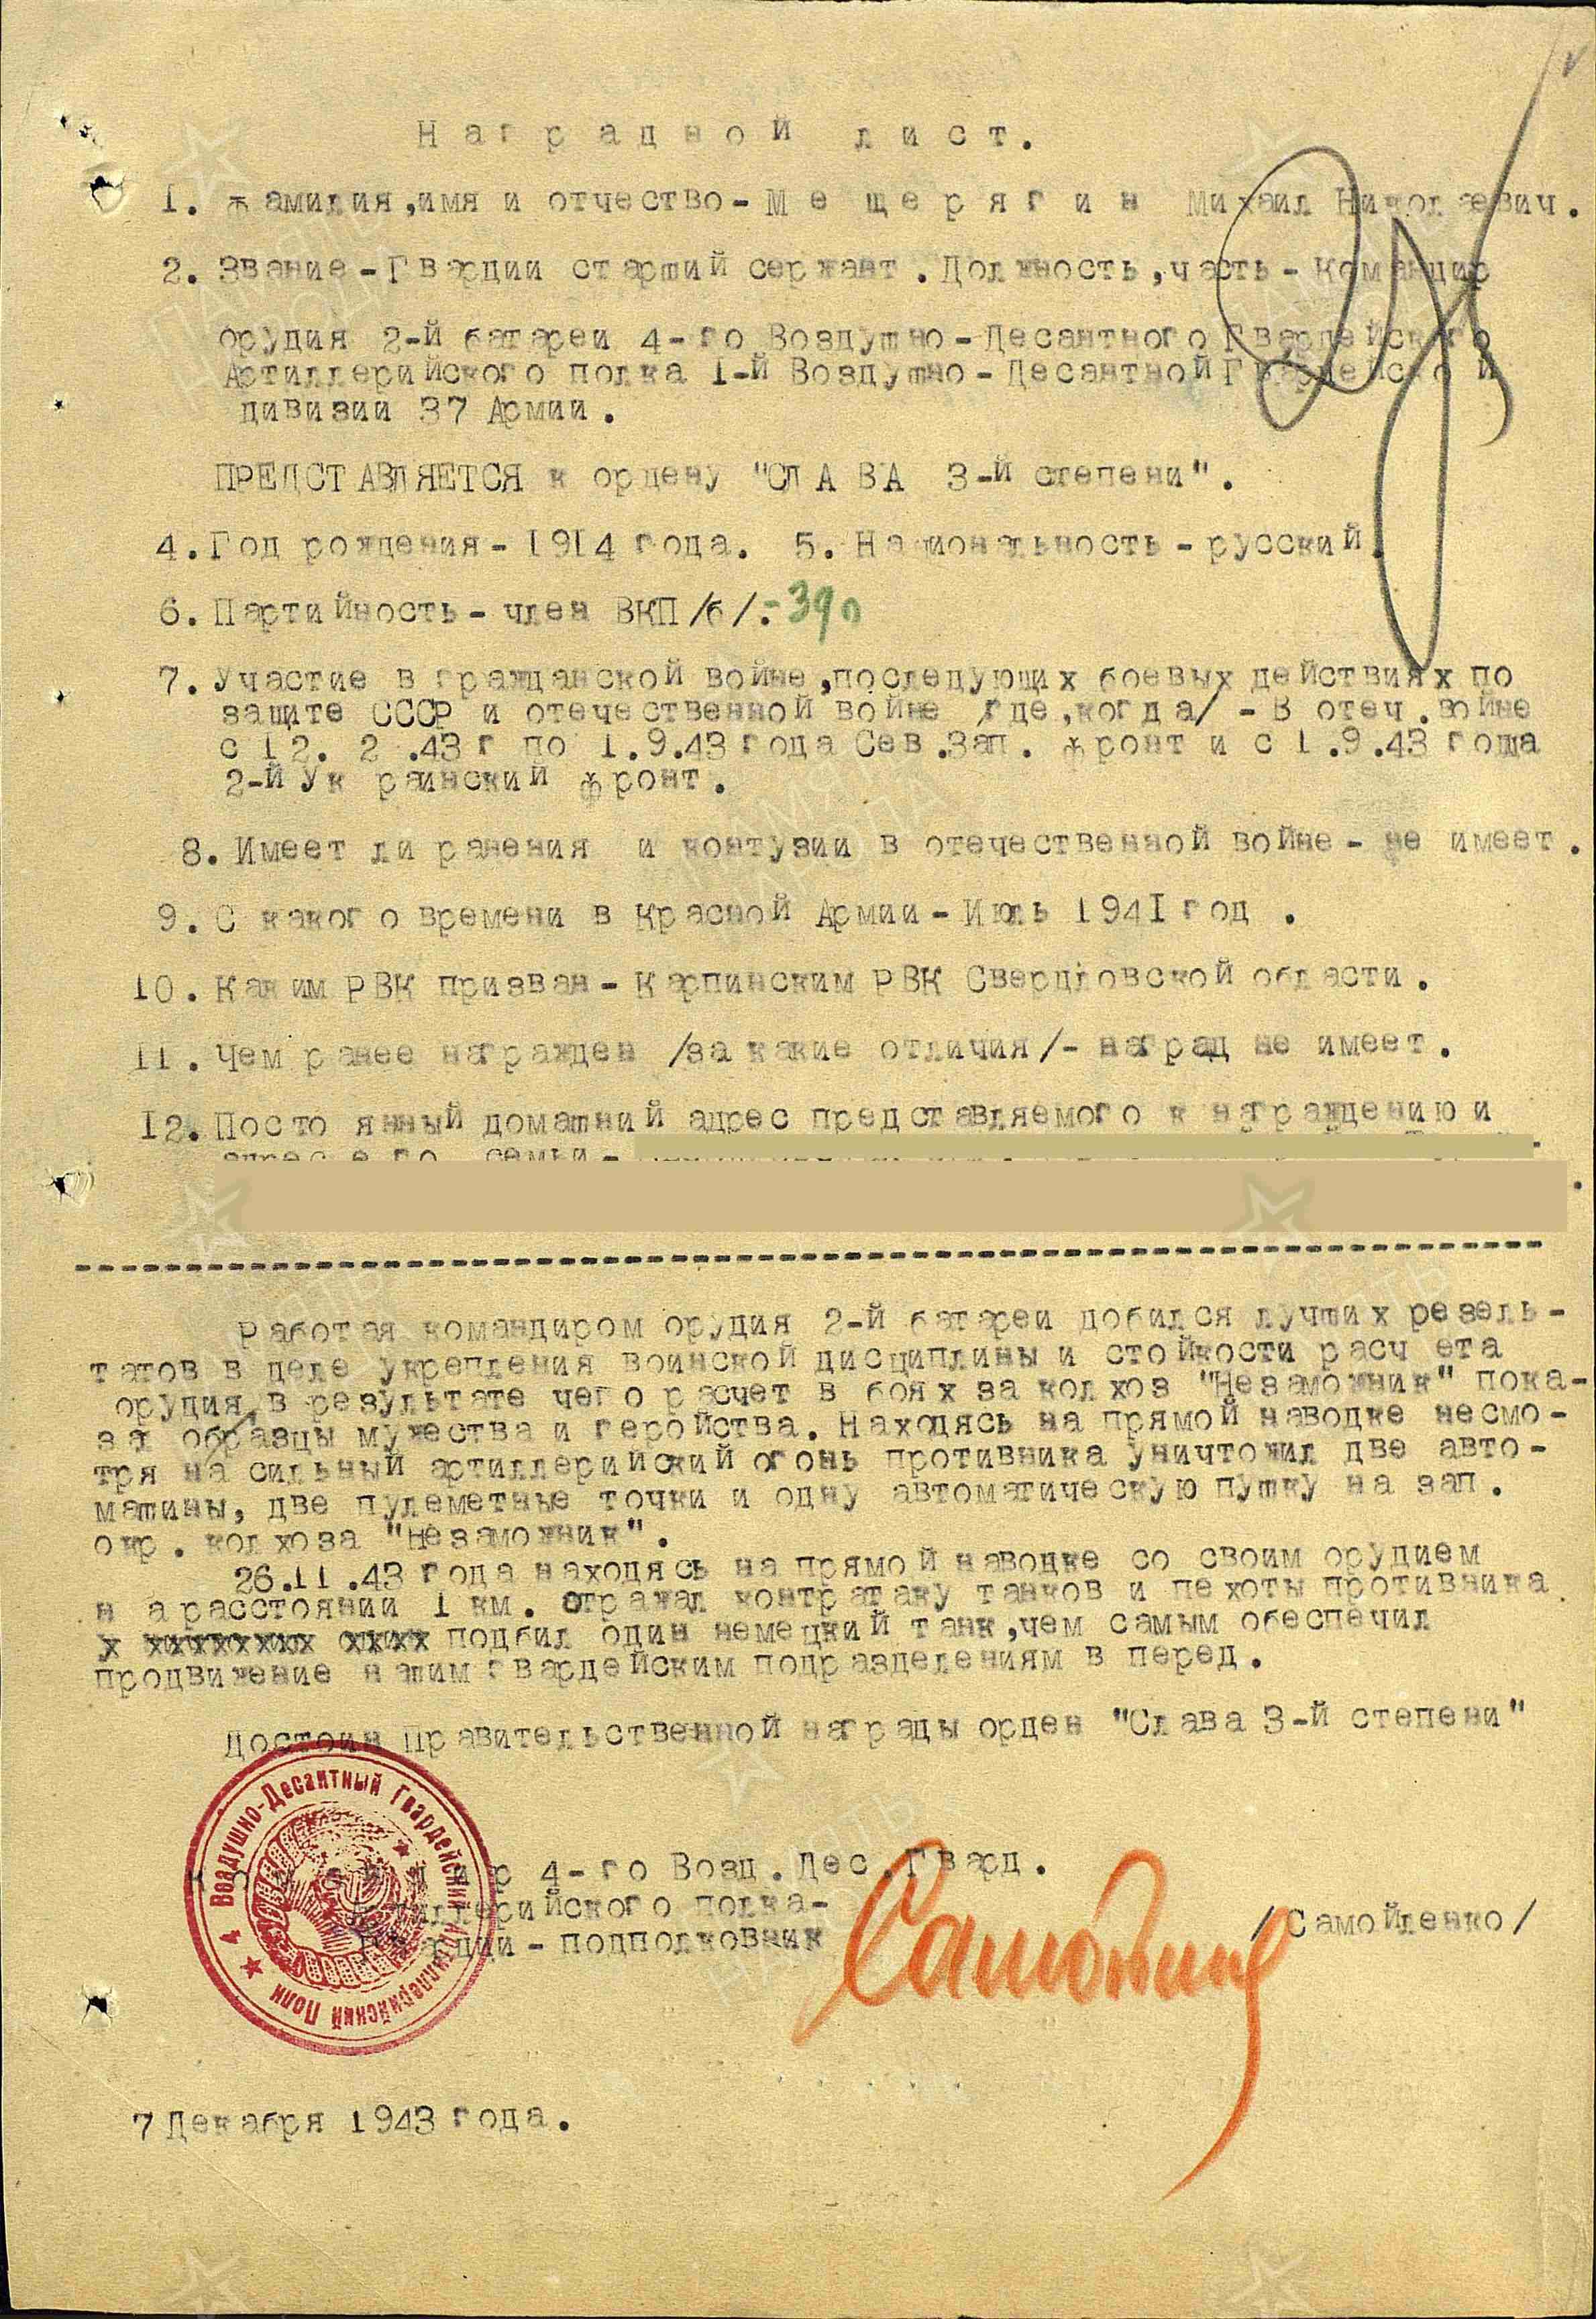 Наградной лист.
1. Фамилия,имя и отчество- Мещерягин Михаил Николаевич.
2. Звание-Гвардии старший сержант. Должность,часть- Командир
орудия 2-й батареи 4-го Воздушно-Десантного Гвардейского
Артиллерийского полка 1-й Воздушно-Десантной Гвардейской
дивизии 37 Армии.
ПРЕДСТАВЛЯЕТСЯ к ордену "СЛАВА 3-й степени".
4. Год рождения- 1914 года. 5. Национальность- русский.
6. Партийность- член ВКП/б/.- 39г
7. Участие в гражданской войне,последующих боевых действиях по
защите СССР и отечественной войне /где,когда/ -В отеч.войне
с 12. 2 .43г по 1.9.43 года Сев.Зап. фронт и с 1.9.43 года
2-й Украинский фронт.
8. Имеет ли ранения и контузии в отечественной войне- не имеет.
9. С какого времени в Красной Армии- Июль 1941 год .
10. Каким РВК призван- Карпинским РВК Свердловской области.
11. Чем ранее награжден /за какие отличия/- наград не имеет.
12. Постоянный домашний адрес представляемого к награждению и
адрес его семьи-
Работая командиром орудия 2-й батареи добился лучших резель-
татов в деле укрепления воинской дисциплины и стойкости расчета
орудия,в результате чего расчет в боях за колхоз "Незаможник" пока-
зал образцы мужества и геройства. Находясь на прямой наводке несмо-
тря на сильный артиллерийский огонь противника уничтожил две авто-
машины, две пулеметные точки и одну автоматическую пушку на зап.
окр. колхоза "Незаможник".
26.11.43 года находясь на прямой наводке со своим орудием
на расстоянии 1 км. отражал контратаку танков и пехоты противника
х хххххххх хххх подбил один немецкий танк,чем самым обеспечил
продвижение нашим гвардейским подразделениям в перед.
Достоин Правительственной награды орден "Слава 3-й степени"
Командир 4-го Возд.Дес.Гвард.
Артиллерийского полка-
Гвардии-подполковник
/Самойленко/
4 Воздушно-Десантный Гвардейский Артиллерийский Полк
7 Декабря 1943 года.